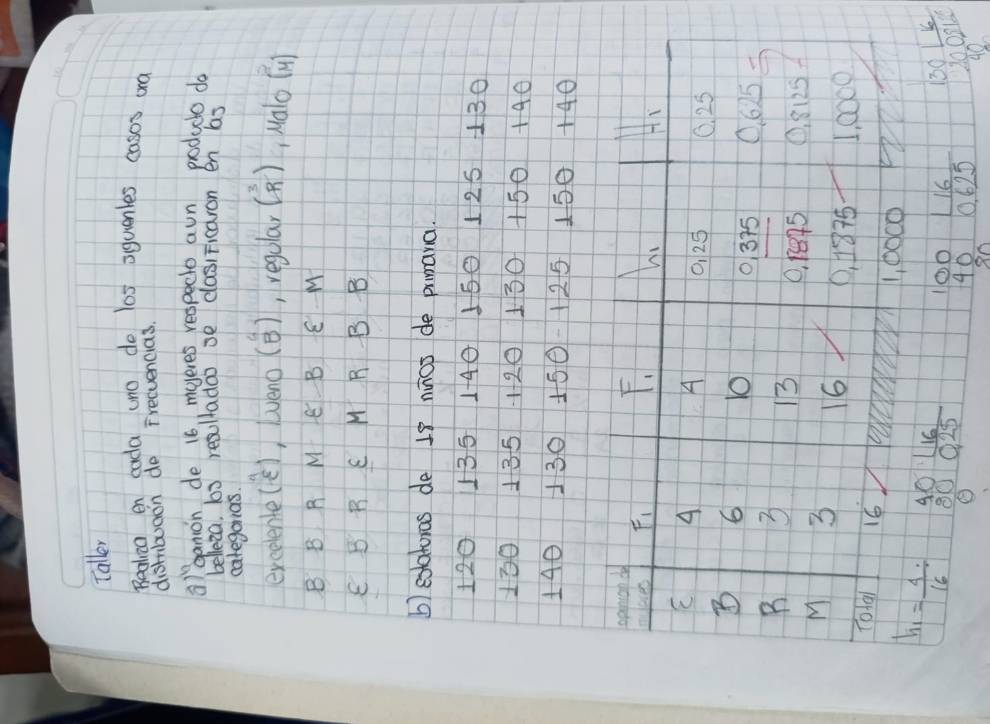 Taller
Realiza en cada uno de los siguientes casos una
distribución de Frecuencias.
a) opinión de 16 mujeres respecto a un producto de
belleza. los resultados se clasificaron en las
categorias.
excelente (E), bueno (B), regular (R), Malo (M)
B B R M E B E M
E B R E M R B B
b) estaturas de 18 niños de primaria.
120 135 140 150 125 130
130 135 120 130 150 140
140 130 150 125 150 140
opinion de mujeres Fi Fi hi Hi
E 4 4 0,25 0,25
B 6 10 0,375 0,625
R 3 13 0,1875 0,8125
M 3 16 0,1875 1,0000
Total 16 1,0000
h1 = 4/16 40 16 100 16 130 16
80 0,25 40 0,625 20 0,812
0 80 40